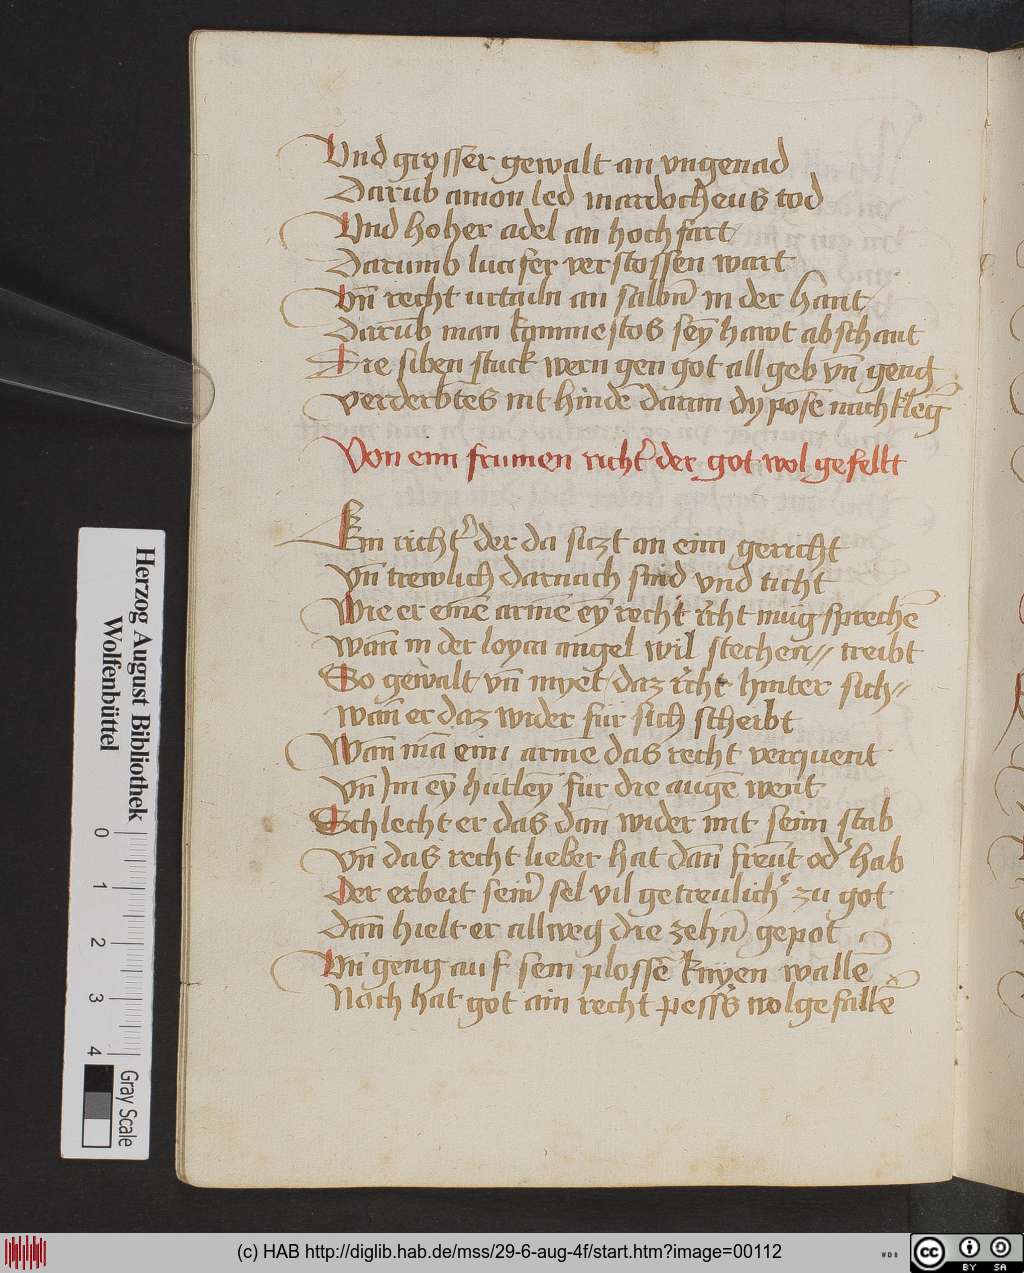 Vnd grosser gewalt an vngenad
Darub amon led mardocheus tod
Vnd hoher adel an hochfart
Darumb lucifer verstossen wart
Vn̄ recht urtailn an salbn̄ in der hant
Darūb man kammestos seÿ hawt abschant
Die siben stuck wern gen got all geb vn̄ geng
verderbtes nit hindē daran dy posē nachkleḡ
Von eim frumen richt̉ der got wol gefellt
Ein richt̉ der da siczt an eim gericht
Vn̄ trewlich darnach sind vnd ticht
Wie er einē armē eÿ recht r̉cht müg sprechē
wan̄ in der loyca angel wil stechen // treibt
So gewalt vn̄ myet daz r̉cht hinter sich //
wan̄ er daz wider für sich scheibt
Wan̄ mā eim armē das recht verquent
vn̄ Im eÿ hütleÿ für die augē went
Schlecht er das dan̄ wider mit seim stab
vn̄ das recht lieber hat dan̄ freüt od̉ hab
Der erbeit sein̉ sel vil getreulich̉ zu got
dan̄ hielt er allweg die zehn̄ gepot
Vn̄ geng auf sein plossē knyen wallē
Noch hat got ain recht pess̉s wolgefallē
Herzog August Bibliothek
Wolfenbüttel
0 1 2 3 4
Gray Scale
(c) HAB http://diglib.hab.de/mss/29-6-aug-4f/start.htm?image=00112
WDB
cc BY SA